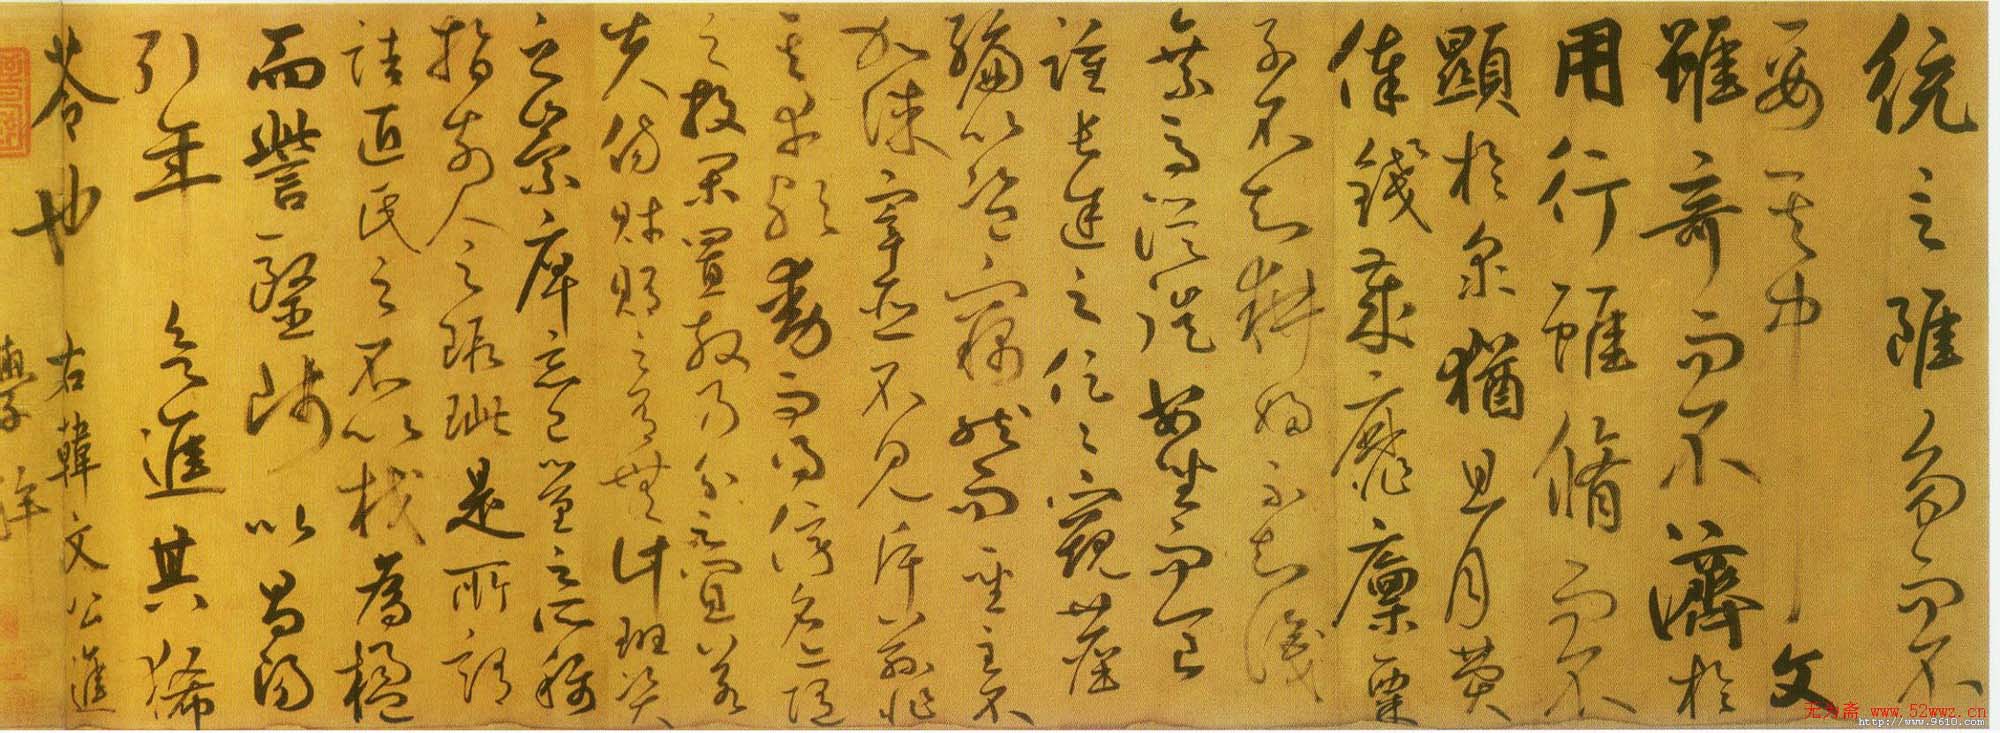 統之雖勤而不
要其中文
雖奇而不濟於
用行雖脩而不
顯於衆猶且月費
俸錢歲靡廩粟
子不知耕婦不知織
乘馬從徒安坐而食
踵常途之促促窺陳
編以盜竊然而聖主不
加誅宰臣不見斥茲非
其幸歟動而得謗名亦隨
之投閑置散乃分之宜若
夫商財賄之有無計班資
之崇庳忘己量之所稱
指前人之瑕疵是所謂
詰匠氏之不以杙爲楹
而訾醫師以昌陽
引年欲進其豨
苓也 右韓文公進
學解
无为斋 www.52wwz.cn
http://www.9610.com